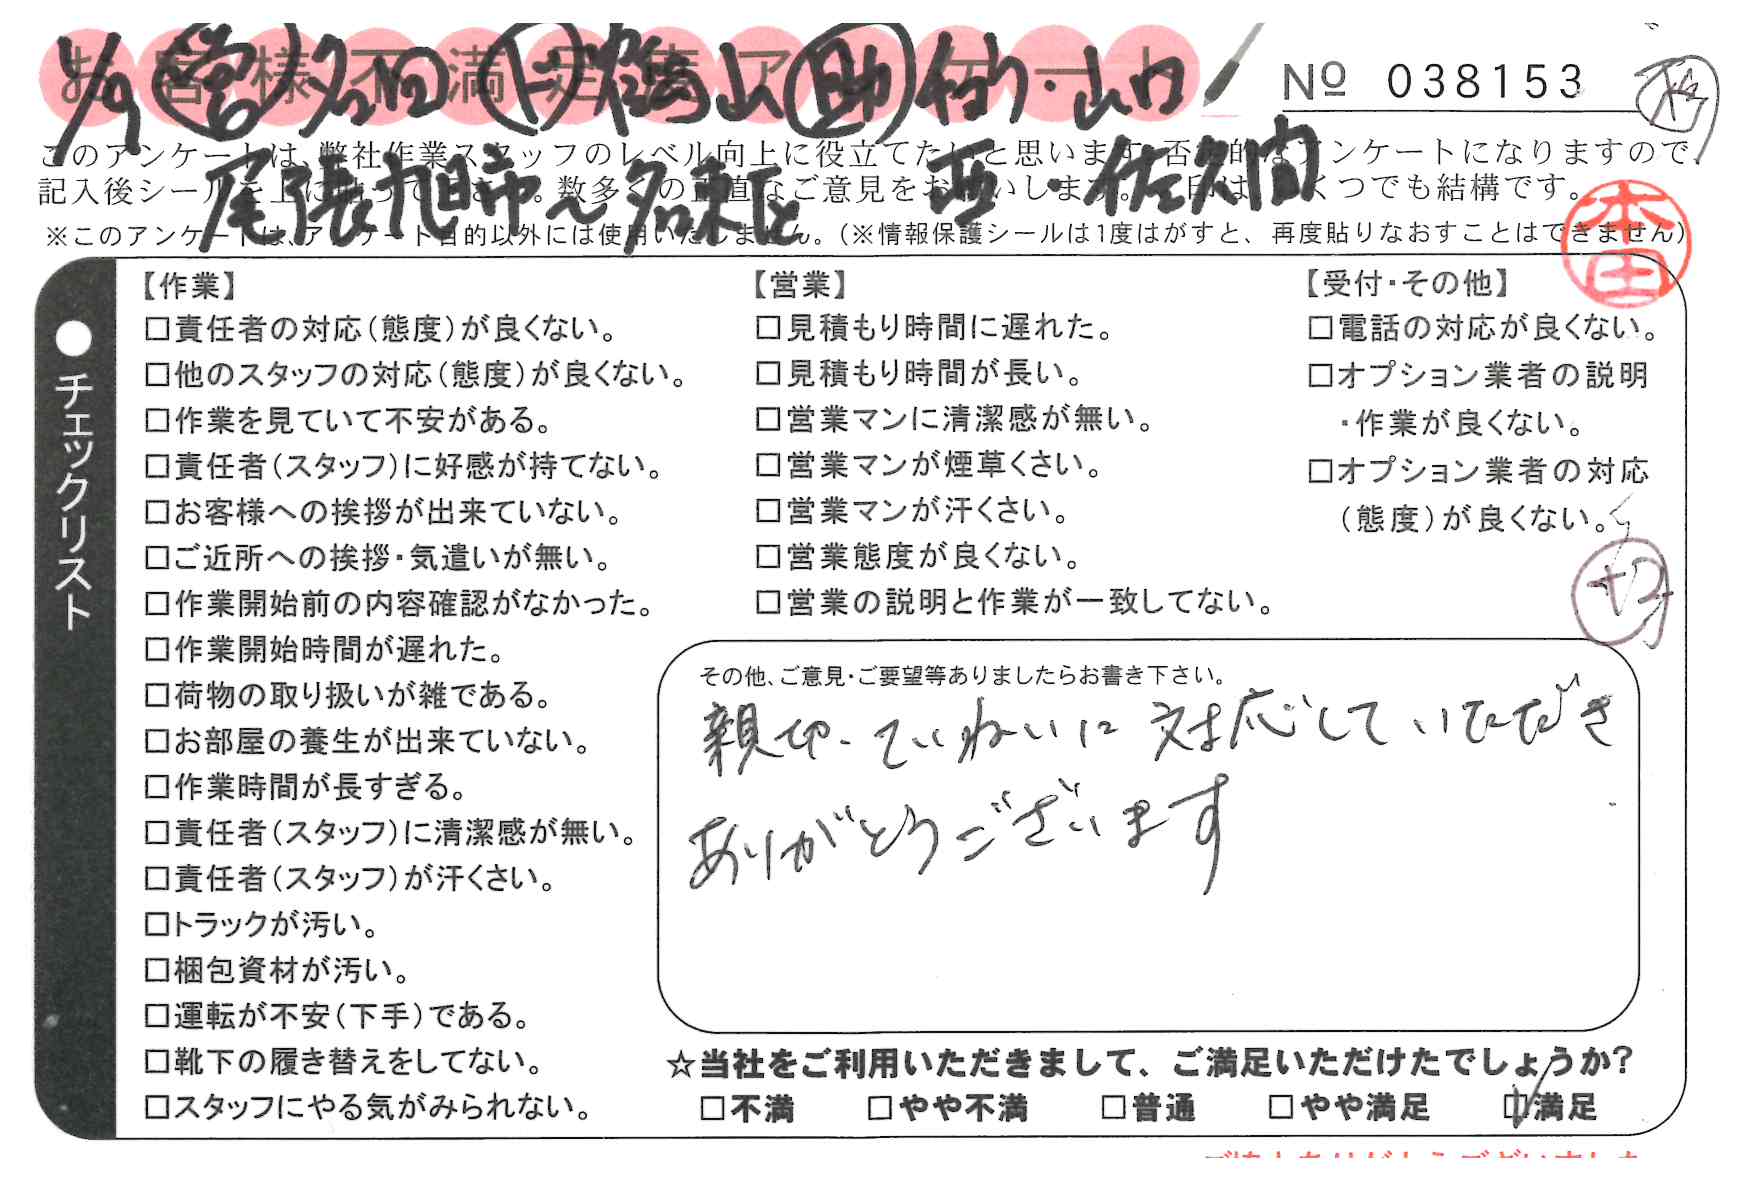 お客様不満足度アンケート
1/9 営 多田 ド 橋山 助 竹ケ・山口
№ 038153
このアンケートは、弊社作業スタッフのレベル向上に役立てたいと思います。否定的なアンケートになりますので、
記入後シールを上に貼って下さい。数多くの正直なご意見をお願いします。いくつでも結構です。
尾張旭市〜名東区
亜・佐久間
※このアンケートは、アンケート目的以外には使用いたしません。(※情報保護シールは1度はがすと、再度貼りなおすことはできません)
本田
●チェックリスト
【作業】
□責任者の対応(態度)が良くない。
□他のスタッフの対応(態度)が良くない。
□作業を見ていて不安がある。
□責任者(スタッフ)に好感が持てない。
□お客様への挨拶が出来ていない。
□ご近所への挨拶・気遣いが無い。
□作業開始前の内容確認がなかった。
□作業開始時間が遅れた。
□荷物の取り扱いが雑である。
□お部屋の養生が出来ていない。
□作業時間が長すぎる。
□責任者(スタッフ)に清潔感が無い。
□責任者(スタッフ)が汗くさい。
□トラックが汚い。
□梱包資材が汚い。
□運転が不安(下手)である。
□靴下の履き替えをしてない。
□スタッフにやる気がみられない。
【営業】
□見積もり時間に遅れた。
□見積もり時間が長い。
□営業マンに清潔感が無い。
□営業マンが煙草くさい。
□営業マンが汗くさい。
□営業態度が良くない。
□営業の説明と作業が一致してない。
【受付・その他】
□電話の対応が良くない。
□オプション業者の説明
・作業が良くない。
□オプション業者の対応
(態度)が良くない。
その他、ご意見・ご要望等ありましたらお書き下さい。
親切、ていねいに対応していただき
ありがとうございます
☆当社をご利用いただきまして、ご満足いただけたでしょうか?
□不満 □やや不満 □普通 □やや満足 ☑満足